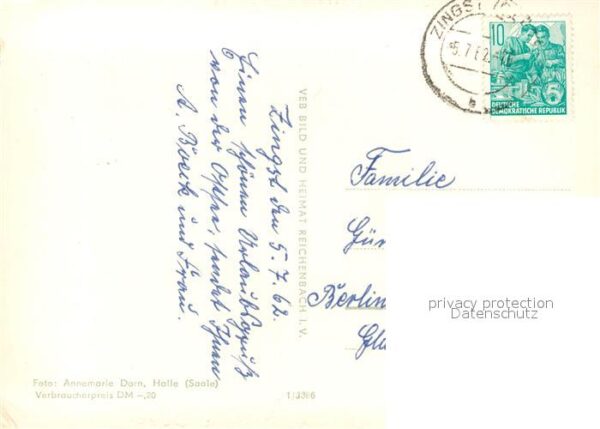 Zingst den 5.7.62.
Einen schönen Urlaubsgruß
von der Ostsee, sendet Ihnen
A. Boeck und Frau.
VEB BILD UND HEIMAT REICHENBACH I. V.
ZINGST
5.7.62
10
5
DEUTSCHE
DEMOKRATISCHE REPUBLIK
Familie
Gün
Berlin
privacy protection
Datenschutz
Foto: Annemarie Dorn, Halle (Saale)
Verbraucherpreis DM -,20
1/3386